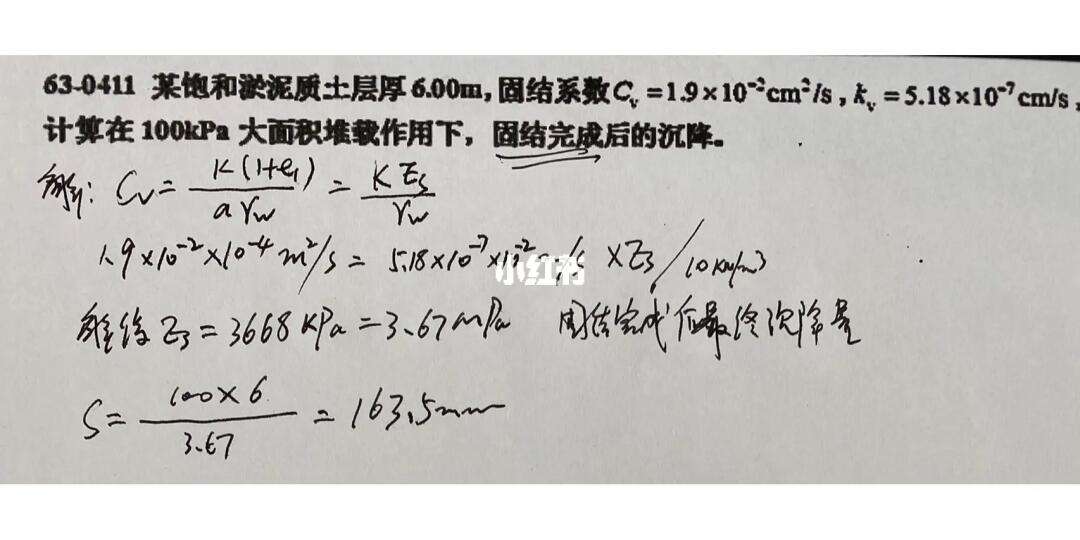 63-0411 某饱和淤泥质土层厚6.00m,固结系数Cᵥ=1.9×10⁻²cm²/s,kᵥ=5.18×10⁻⁷cm/s,
计算在100kPa大面积堆载作用下,固结完成后的沉降。
解:Cv=K(1+e₁)/aγw=KEs/γw
1.9×10⁻²×10⁻⁴m²/s=5.18×10⁻⁷×10⁻²m/s×Es/10KN/m³
小红书
解得Es=3668KPa=3.67mPa 固结完成后最终沉降量
S=100×6/3.67=163.5mm